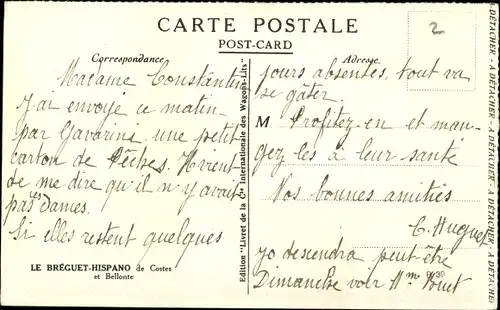 CARTE POSTALE
POST-CARD
Correspondance
Adresse
2
Madame Constantin
J'ai envoyé ce matin
par Gavarini une petit
carton de Pêches. Il vient
de me dire qu'il n'y avait
pas ces Dames.
Si elles restent quelques
LE BRÉGUET-HISPANO de Costes
et Bellonte
Edition "Livret de la Cie Internationale des Wagons-Lits"
jours absentes, tout va
se gâter.
M Profitez en et man-
gez les à leur santé
Nos bonnes amitiés
C. Huguet
descendra peut-être
Dimanche voir Mme
A DÉTACHER - A DÉTACHER - A DÉTACHER - A DÉTACHER